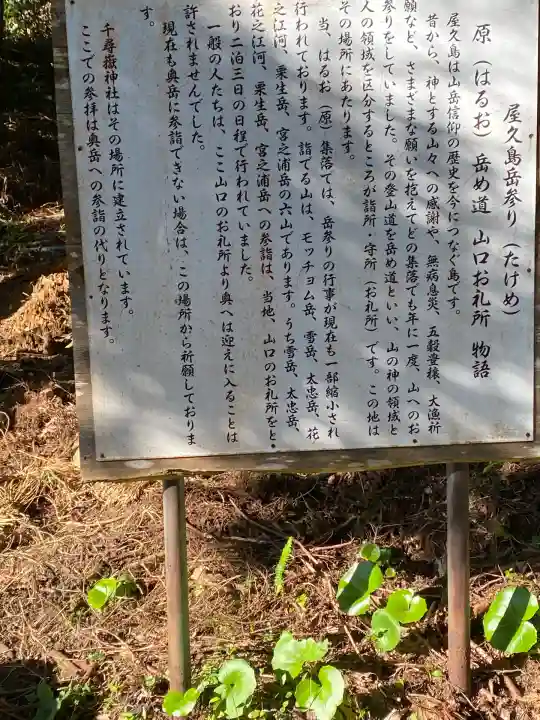 屋久島岳参り(たけめ)
原(はるお)岳め道 山口お礼所 物語
屋久島は山岳信仰の歴史を今につなぐ島です。
昔から、神とする山々への感謝や、無病息災、五穀豊穣、大漁祈
願など、さまざまな願いを抱えてどの集落でも年に一度、山へのお
参りをしていました。その登山道を岳め道といい、山の神の領域と
人の領域を区分するところが詣所・守所(お礼所)です。この地は
その場所にあたります。
当、はるお(原)集落では、岳参りの行事が現在も一部縮小され
行われております。詣でる山は、モッチョム岳、雪岳、太忠岳、花
之江河、栗生岳、宮之浦岳の六山であります。うち雪岳、太忠岳、
花之江河、栗生岳、宮之浦岳への参詣は、当地、山口のお礼所をと
おり二泊三日の日程で行われていました。
一般の人たちは、ここ山口のお礼所より奥へは迎えに入ることは
許されませんでした。
現在も奥岳に参詣できない場合は、この場所から祈願しておりま
す。
千尋嶽神社はその場所に建立されています。
ここでの参拝は奥岳への参詣の代りとなります。